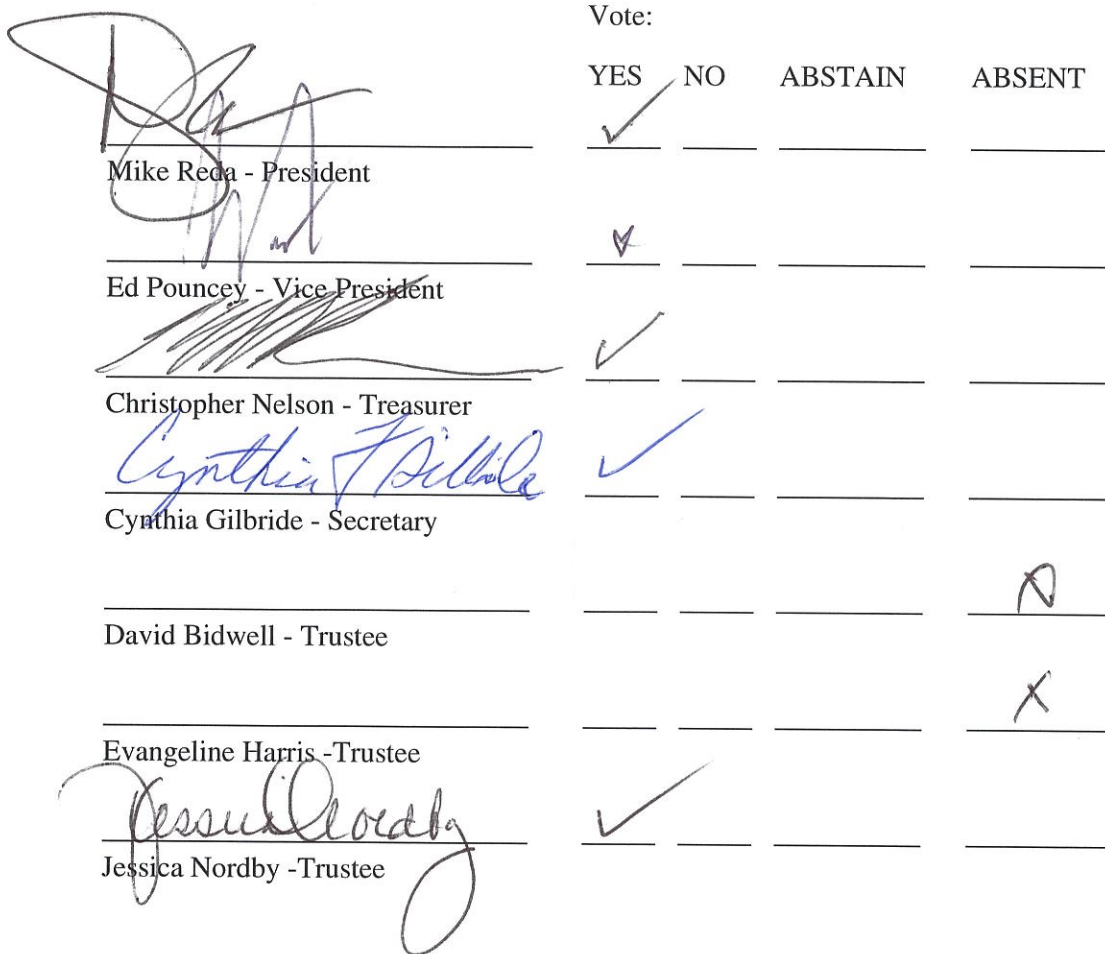 Vote:
YES NO ABSTAIN ABSENT
Mike Reda - President
Ed Pouncey - Vice President
Christopher Nelson - Treasurer
Cynthia F Gilbride
Cynthia Gilbride - Secretary
David Bidwell - Trustee
Evangeline Harris -Trustee
Jessica Nordby
Jessica Nordby -Trustee